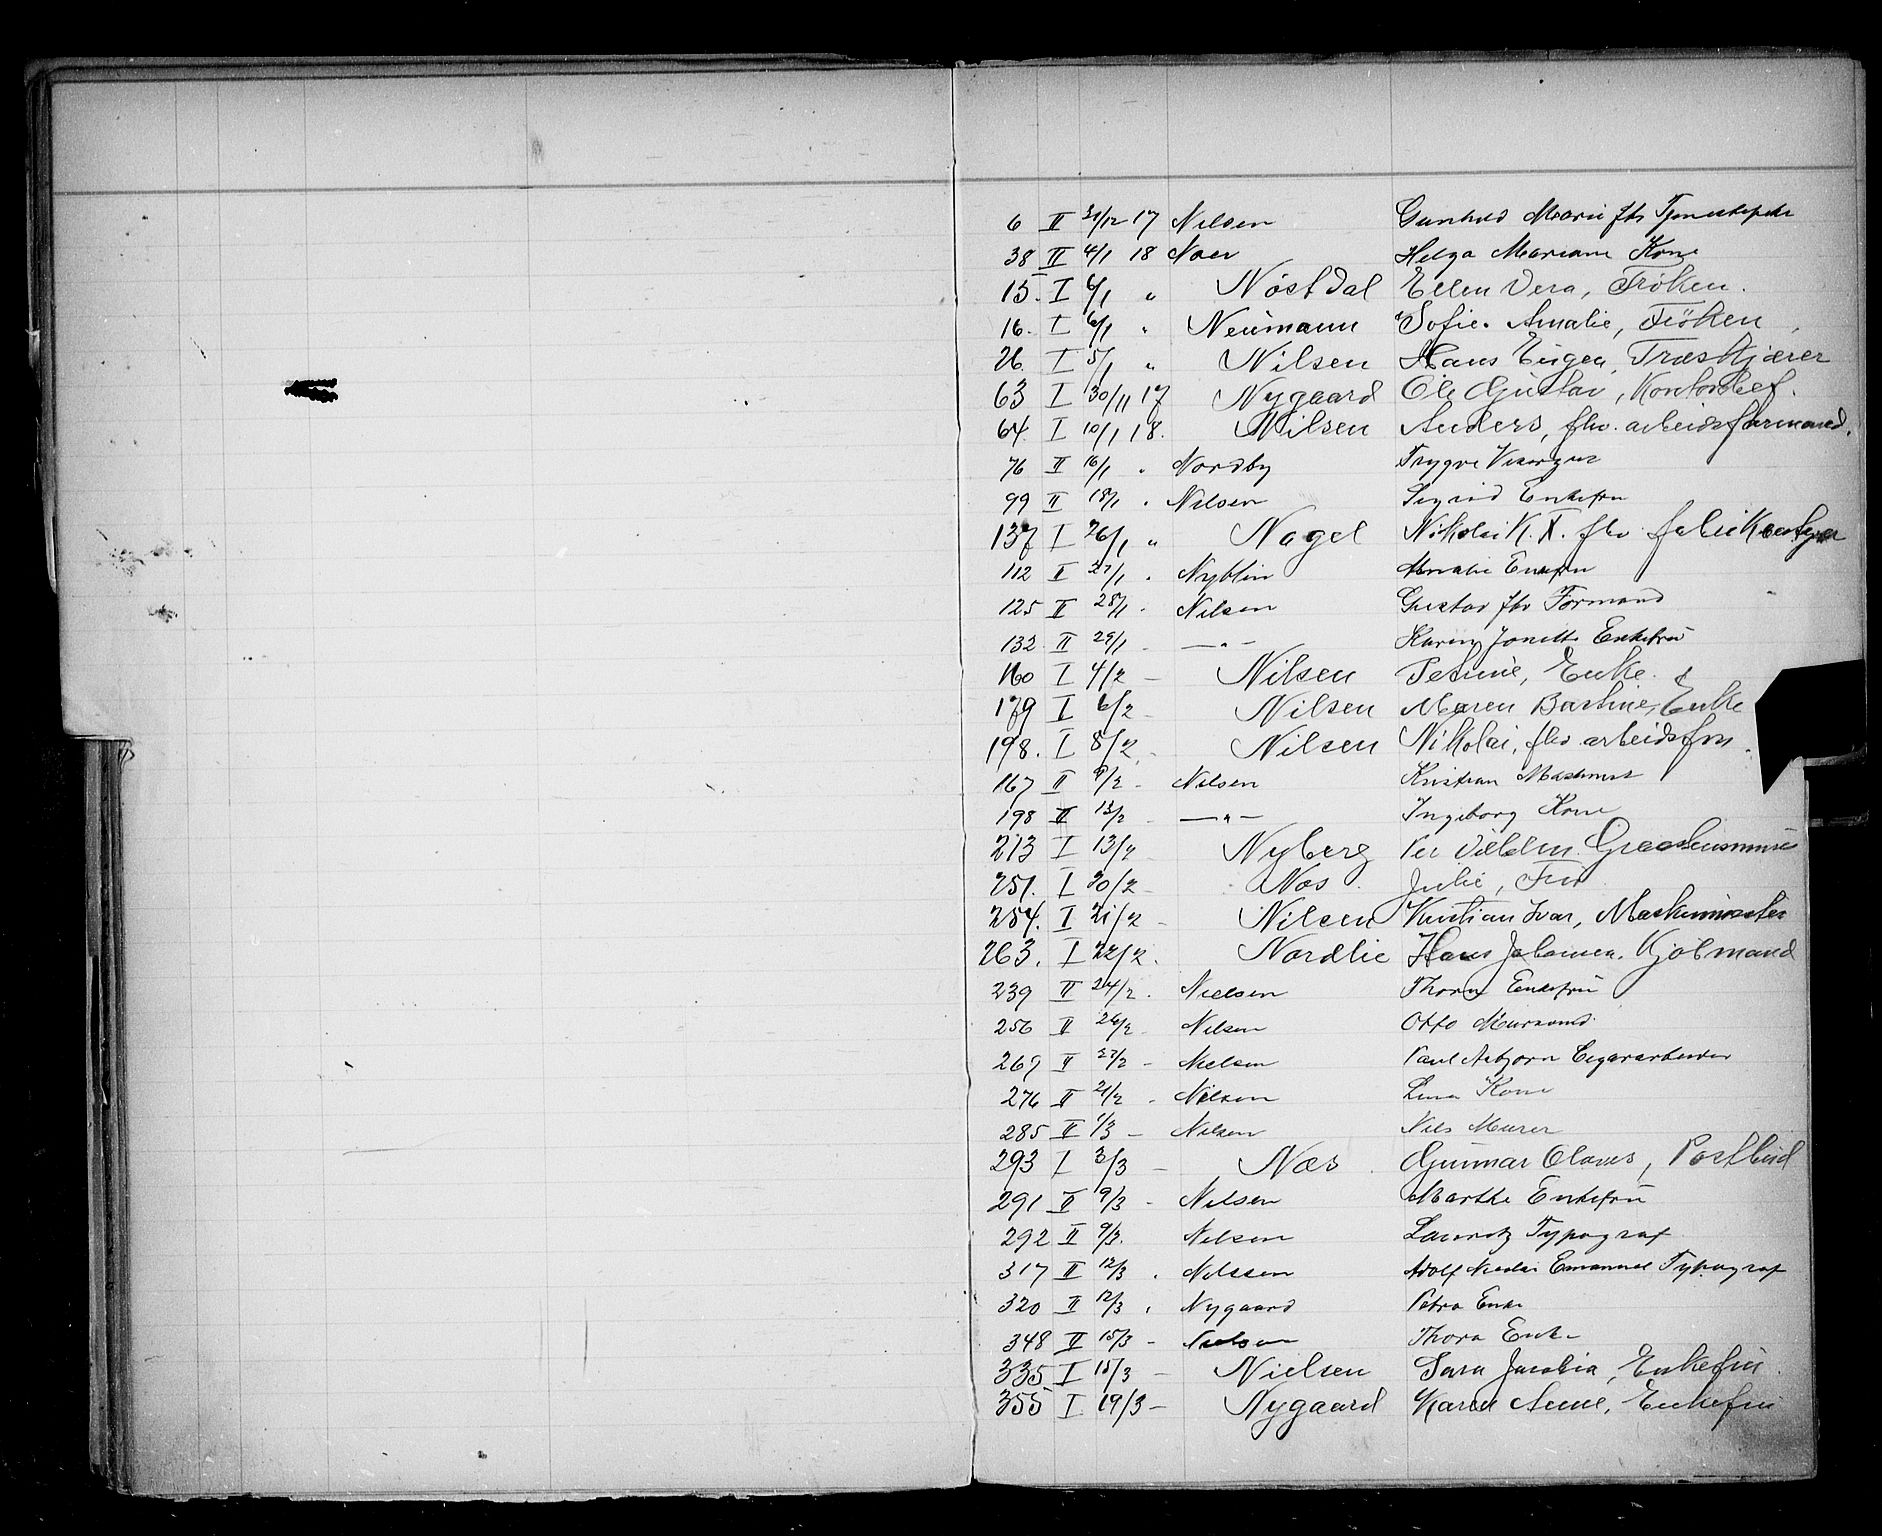 6 II 21/12 17 Nilsen Gunhild Marie fhv
38 II 4/1 18 Noer Helga Mariane Kone
15. I 6/1 " Nøstdal Ellen Vera, Frøken.
16. I 6/1 " Neumann Sofie Amalie, Frøken
26. I 5/1 " Nilsen Hans Eugen, Træskjærer
63 I 30/11 17 Nygaard Ole Gustav, Kontorchef.
64. I 10/1 18. Nilsen Anders, fhv. arbeidsformand.
76 II 16/1 " Nordby Trygve Visergut
99 II 18/1 " Nilsen Sigrid Enkefru
137 I 26/1 " Nagel Nikolai K. fhv
112 II 27/1 " Nyblin Amalie Enkefru
125 II 28/1 " Nilsen Gustav fhv Formand
132 II 29/1 - —"— Karen Jonette Enkefru
160 I 4/2 — Nilsen Petrine, Enke.
179 I 6/2 - Nilsen Maren Bastine, Enke
198. I 8/2 - Nilsen Nikolai, fhv arbeidsfm.
167 II 9/2 - Nilsen Kristian Maskinist
198 II 13/2 - —"— Ingeborg Kone
213 I 13/2 Nyberg Per
251. I 20/2 - Næs. Julie, Fru
254. I 21/2 - Nilsen Kristian Ivar, Maskinmester
263. I 22/2. Nordlie Hans Johannes. Kjølmand
239 II 24/2. Nielsen Thora Enkefru
256 II 26/2 Nilsen Otto Mursvend
267 II 27/2 - Nielsen Paul Asbjørn Cigararbeider
276 II 21/2 - Nilsen Lina Kone
285 II 1/3 - Nilsen Nils Murer
293 I 3/3 - Næs. Gunnar Olaves, Postbud
291 II 9/3 - Nilsen Marthe Enkefru
292 II 9/3. Nilsen Lauritz Typograf
317 II 12/3 " Nilssen Adolf Nicolai Emanuel Typograf
320 II 12/3 " Nygaard Petra Enke
348 II 15/3 - Nielsen Thora Enke
335 I 15/3 - Nielsen Sara Jacobia, Enkefru.
355 I 19/3 - Nygaard Karen Anne, Enkefru